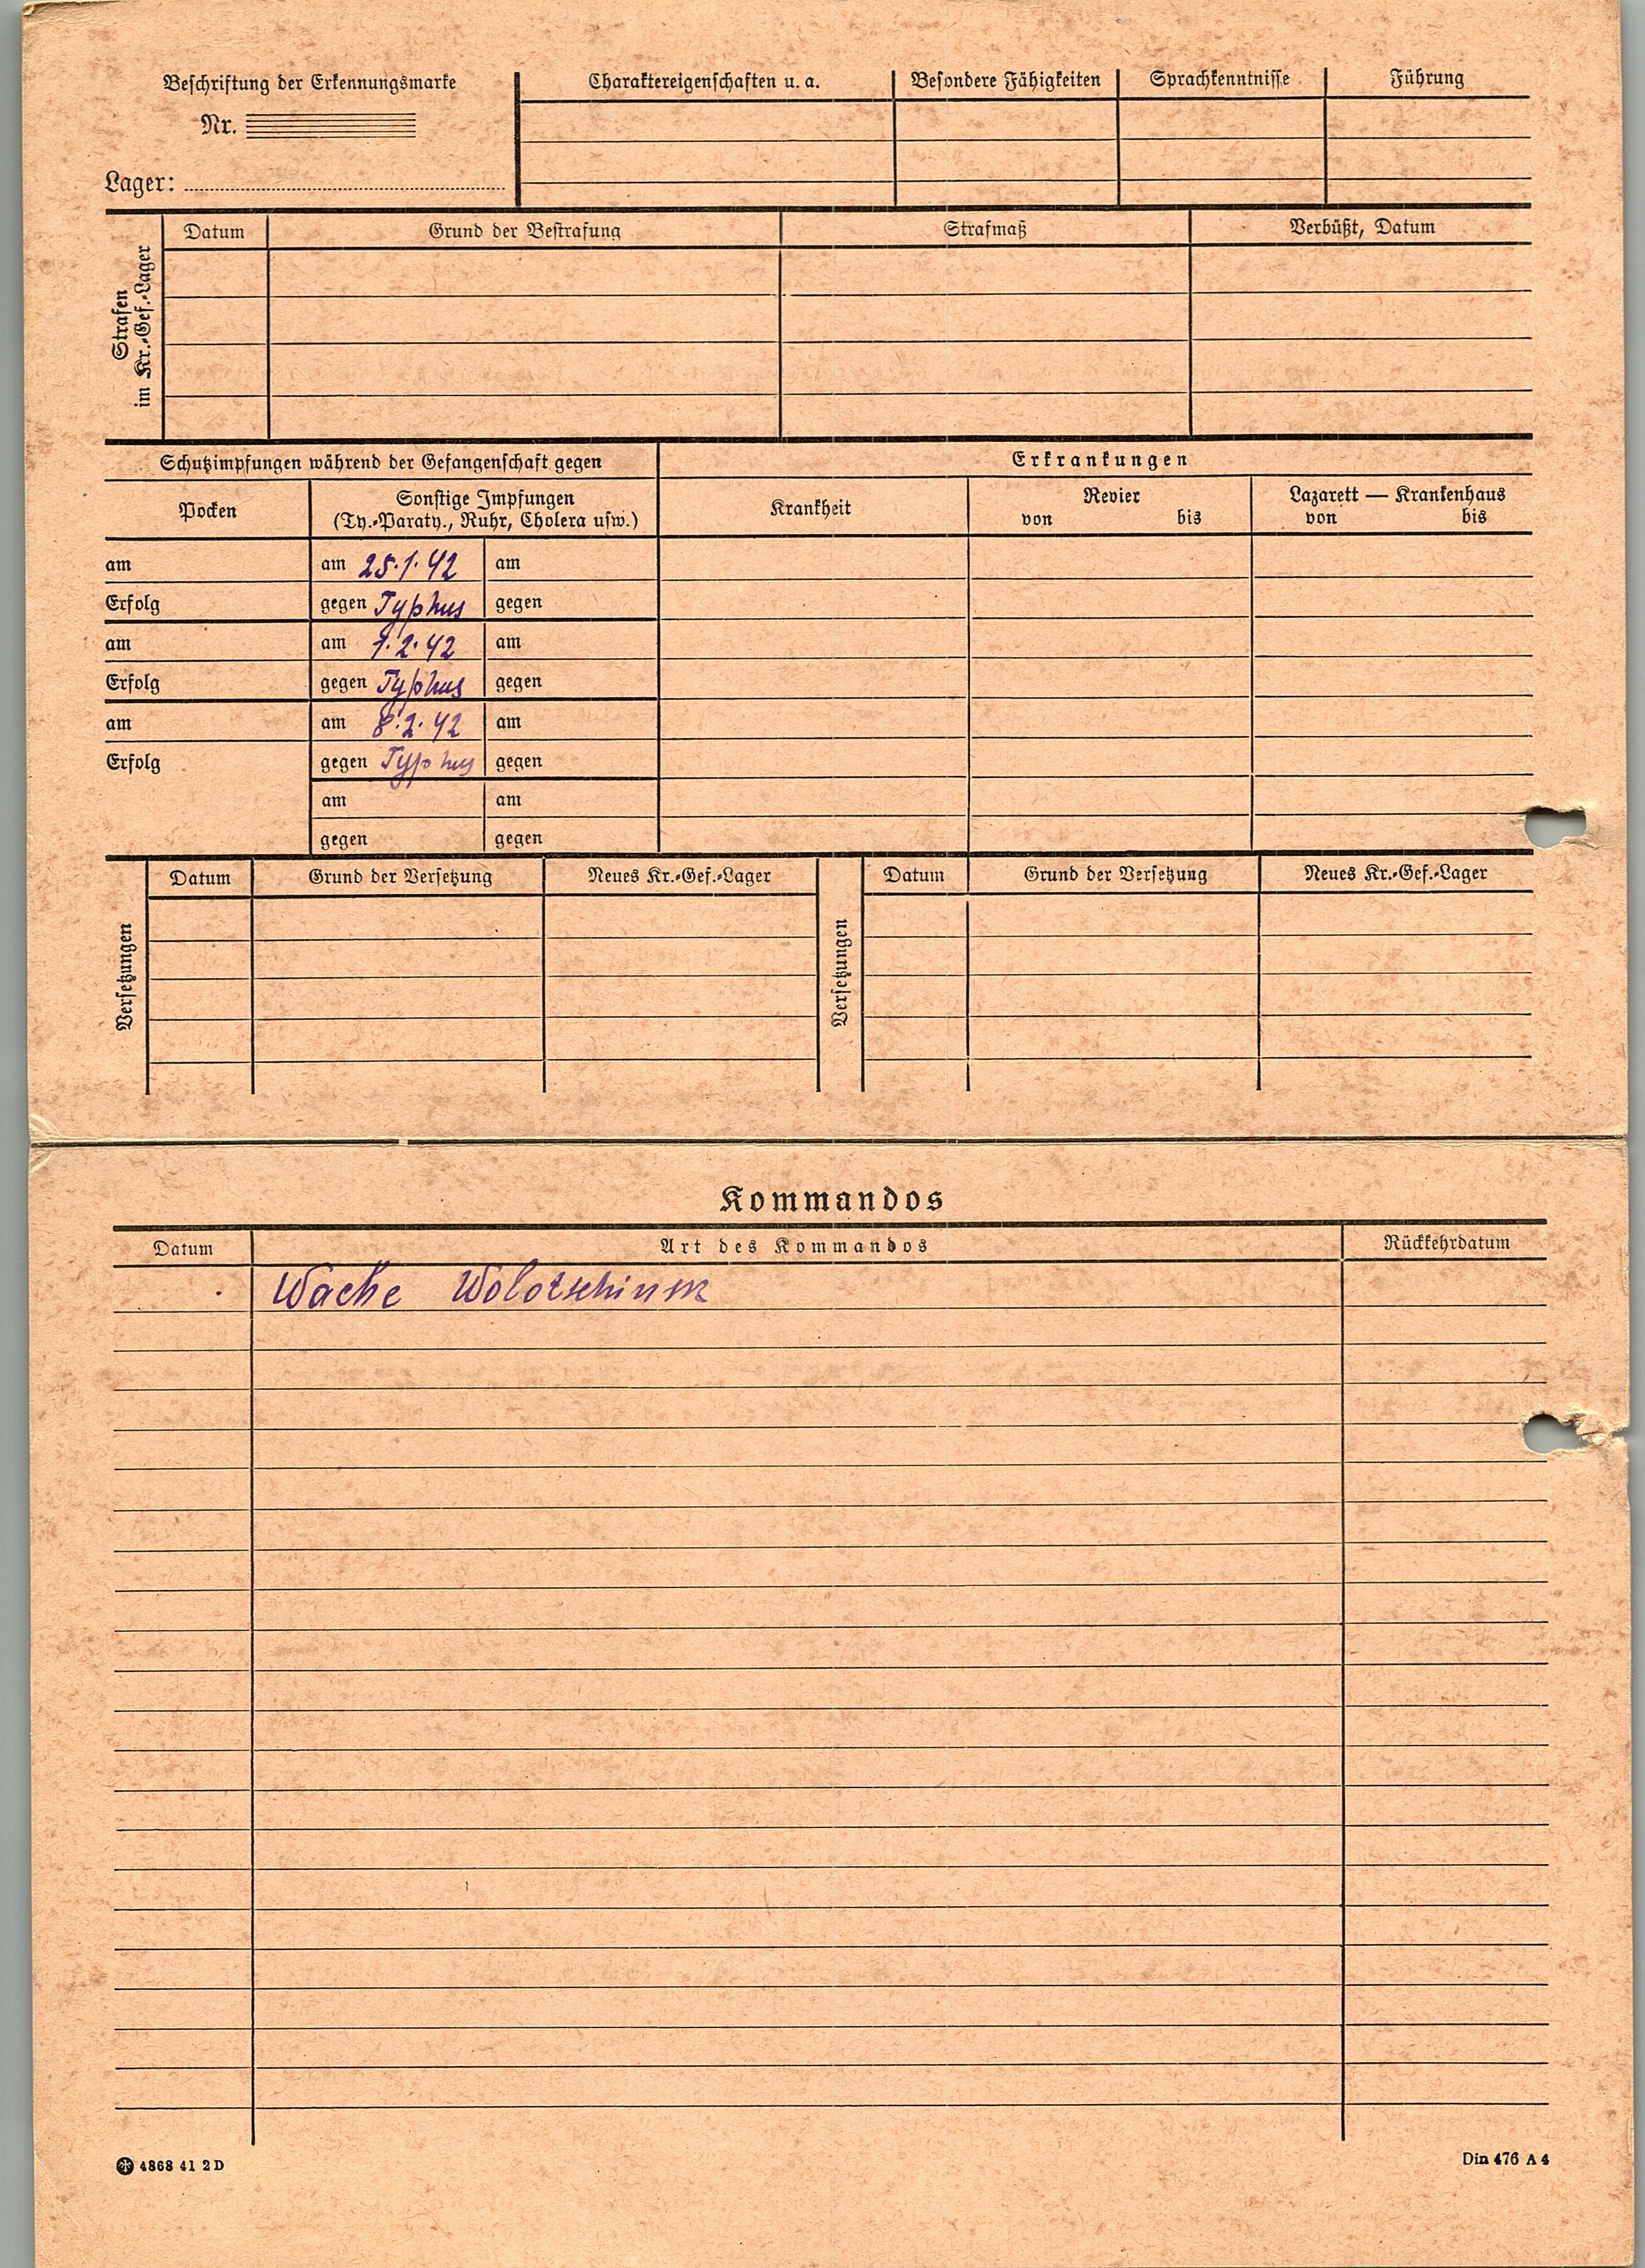 Beschriftung der Erkennungsmarke
Nr.
Lager:
Charaktereigenschaften u. a.
Besondere Fähigkeiten
Sprachkenntnisse
Führung
Strafen
im Kr.-Gef.-Lager
Datum
Grund der Bestrafung
Strafmaß
Verbüßt, Datum
Schutzimpfungen während der Gefangenschaft gegen
Erkrankungen
Pocken
Sonstige Impfungen
(Ty.-Paraty., Ruhr, Cholera usw.)
Krankheit
Revier
von bis
Lazarett — Krankenhaus
von bis
am am 25.1.42 am
Erfolg gegen Typhus gegen
am am 1.2.42 am
Erfolg gegen Typhus gegen
am am 8.2.42 am
Erfolg gegen Typhus gegen
am am
gegen gegen
Versetzungen
Datum
Grund der Versetzung
Neues Kr.-Gef.-Lager
Versetzungen
Datum
Grund der Versetzung
Neues Kr.-Gef.-Lager
Kommandos
Datum
Art des Kommandos
Rückkehrdatum
Wache Wolotschinsk
4868 41 2 D
Din 476 A 4